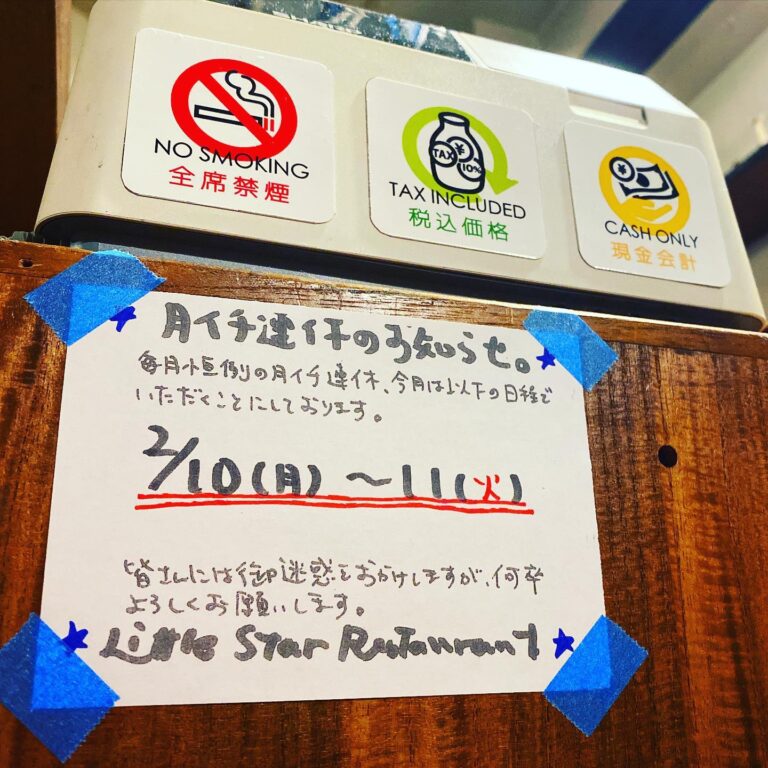 NO SMOKING
全席禁煙
TAX
¥
10%
TAX INCLUDED
税込価格
¥
CASH ONLY
現金会計
月イチ連休のお知らせ。
毎月恒例の月イチ連休、今月は以下の日程で
いただくことにしております。
2/10(月)〜11(火)
皆さんには御迷惑をおかけしますが、何卒
よろしくお願いします。
Little Star Restaurant